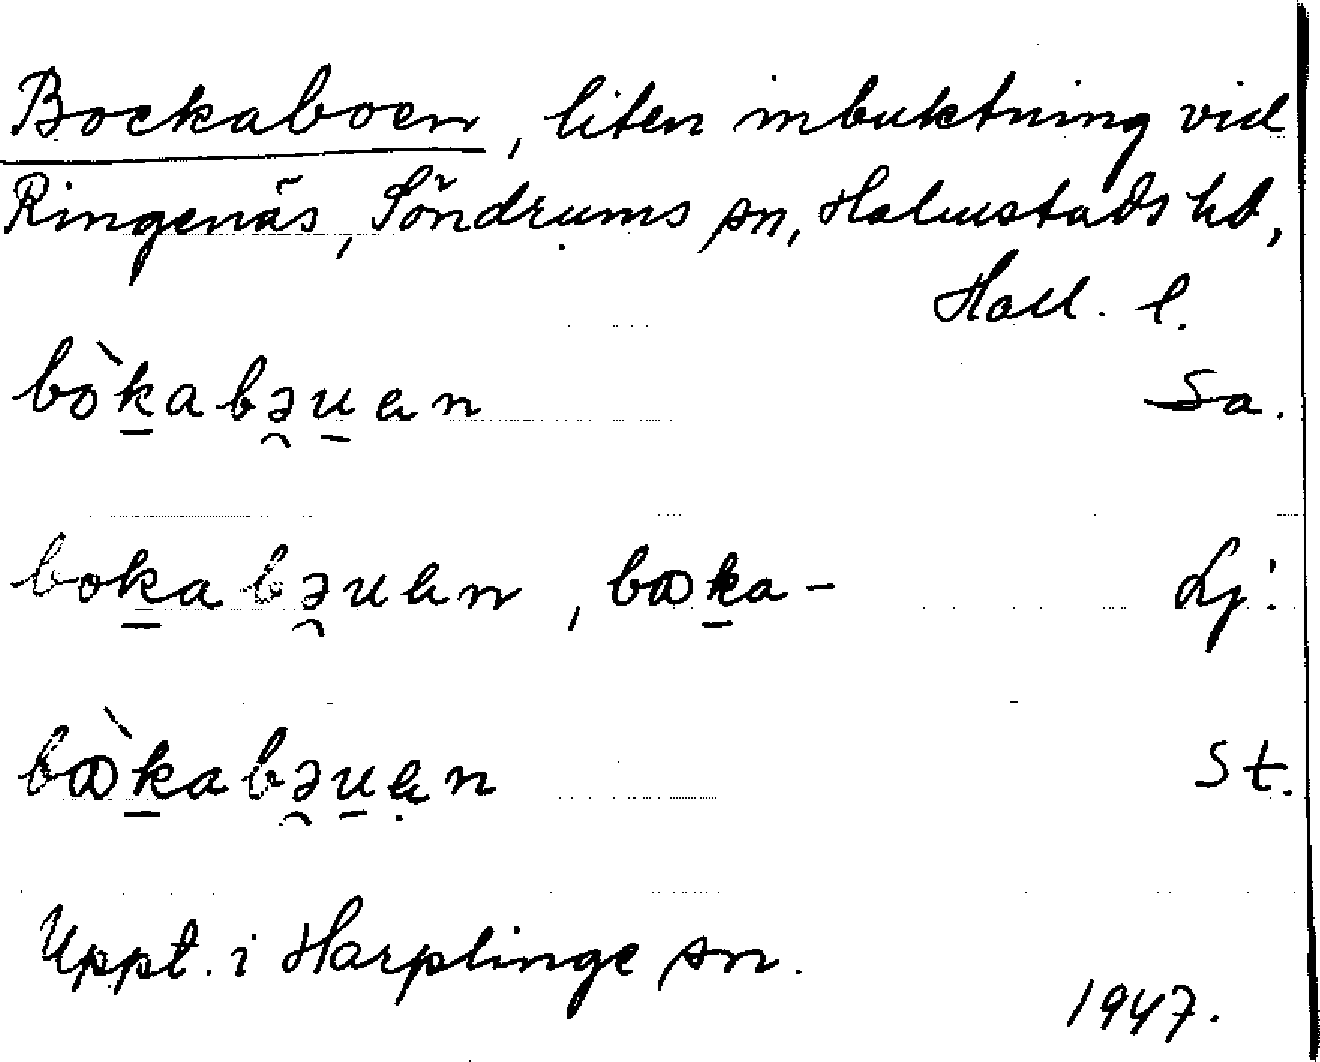 Bockaboen, liten inbuktning vid
Ringenäs, Söndrums sn, Halmstads hd,
Hall. l.
bòkabəuen Sa.
bokabəuen, bɷka- Lj.
bɷ̀kabəuen St.
Uppt. i Harplinge sn.
1947.